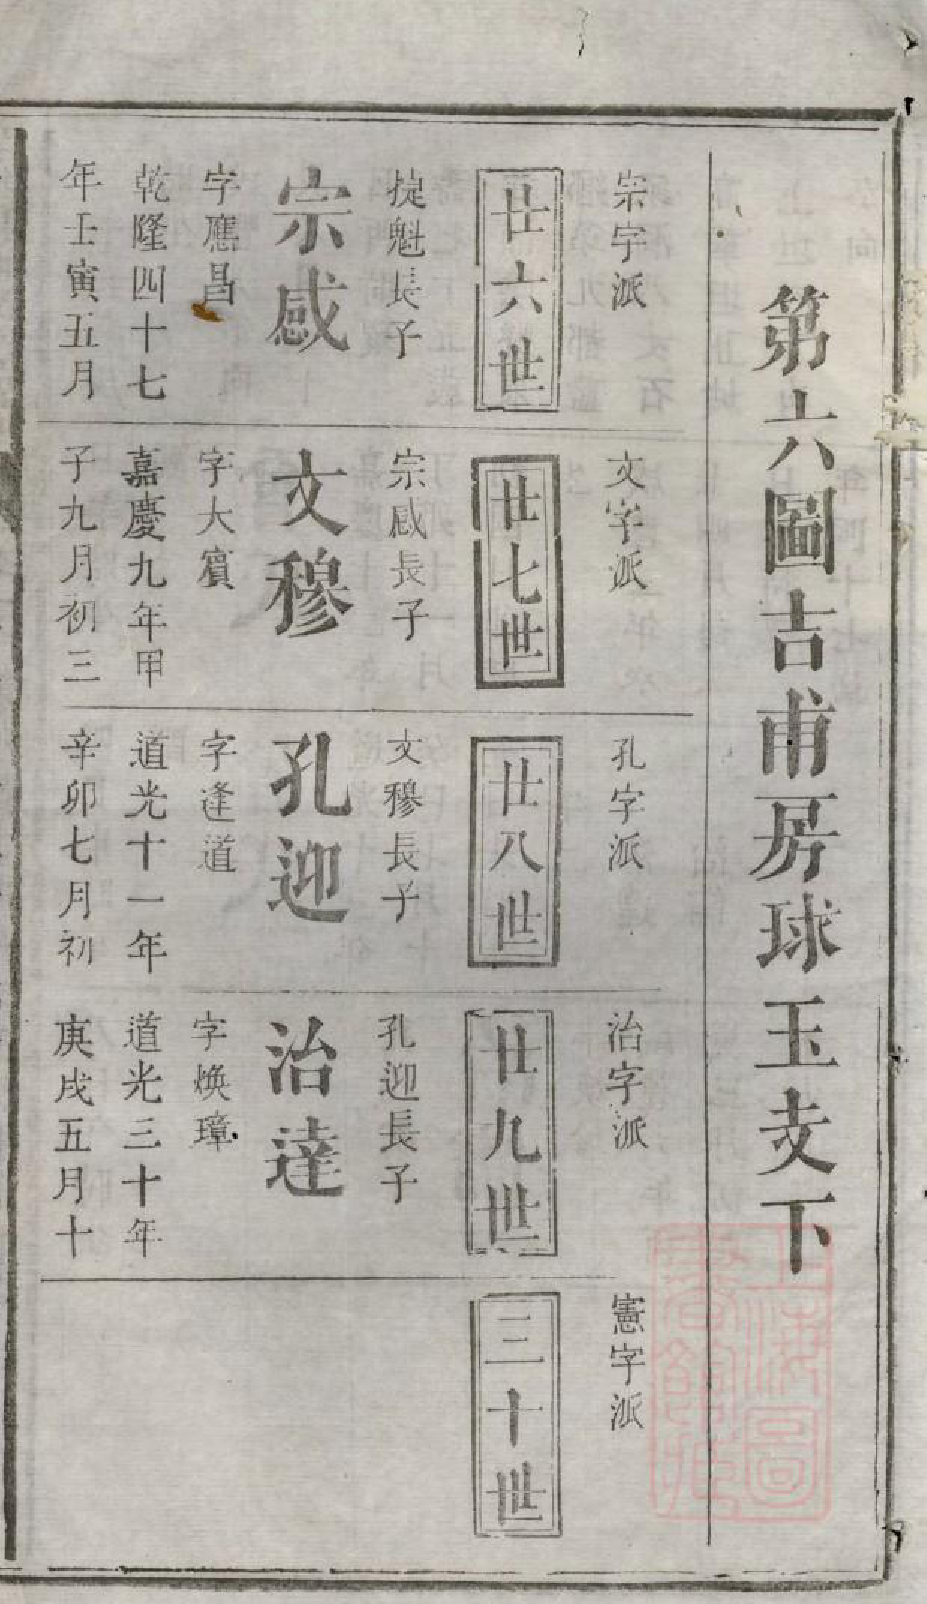 第六圖吉甫房球玉支下
宗字派
廿六世
掟魁長子
宗感
字應昌
乾隆四十七
年壬寅五月
文字派
廿七世
宗感長子
文穆
字大賓
嘉慶九年甲
子九月初三
孔字派
廿八世
文穆長子
孔迎
字逢道
道光十一年
辛卯七月初
治字派
廿九世
孔迎長子
治達
字煥璋
道光三十年
庚戌五月十
憲字派
三十世
上海圖
書館藏